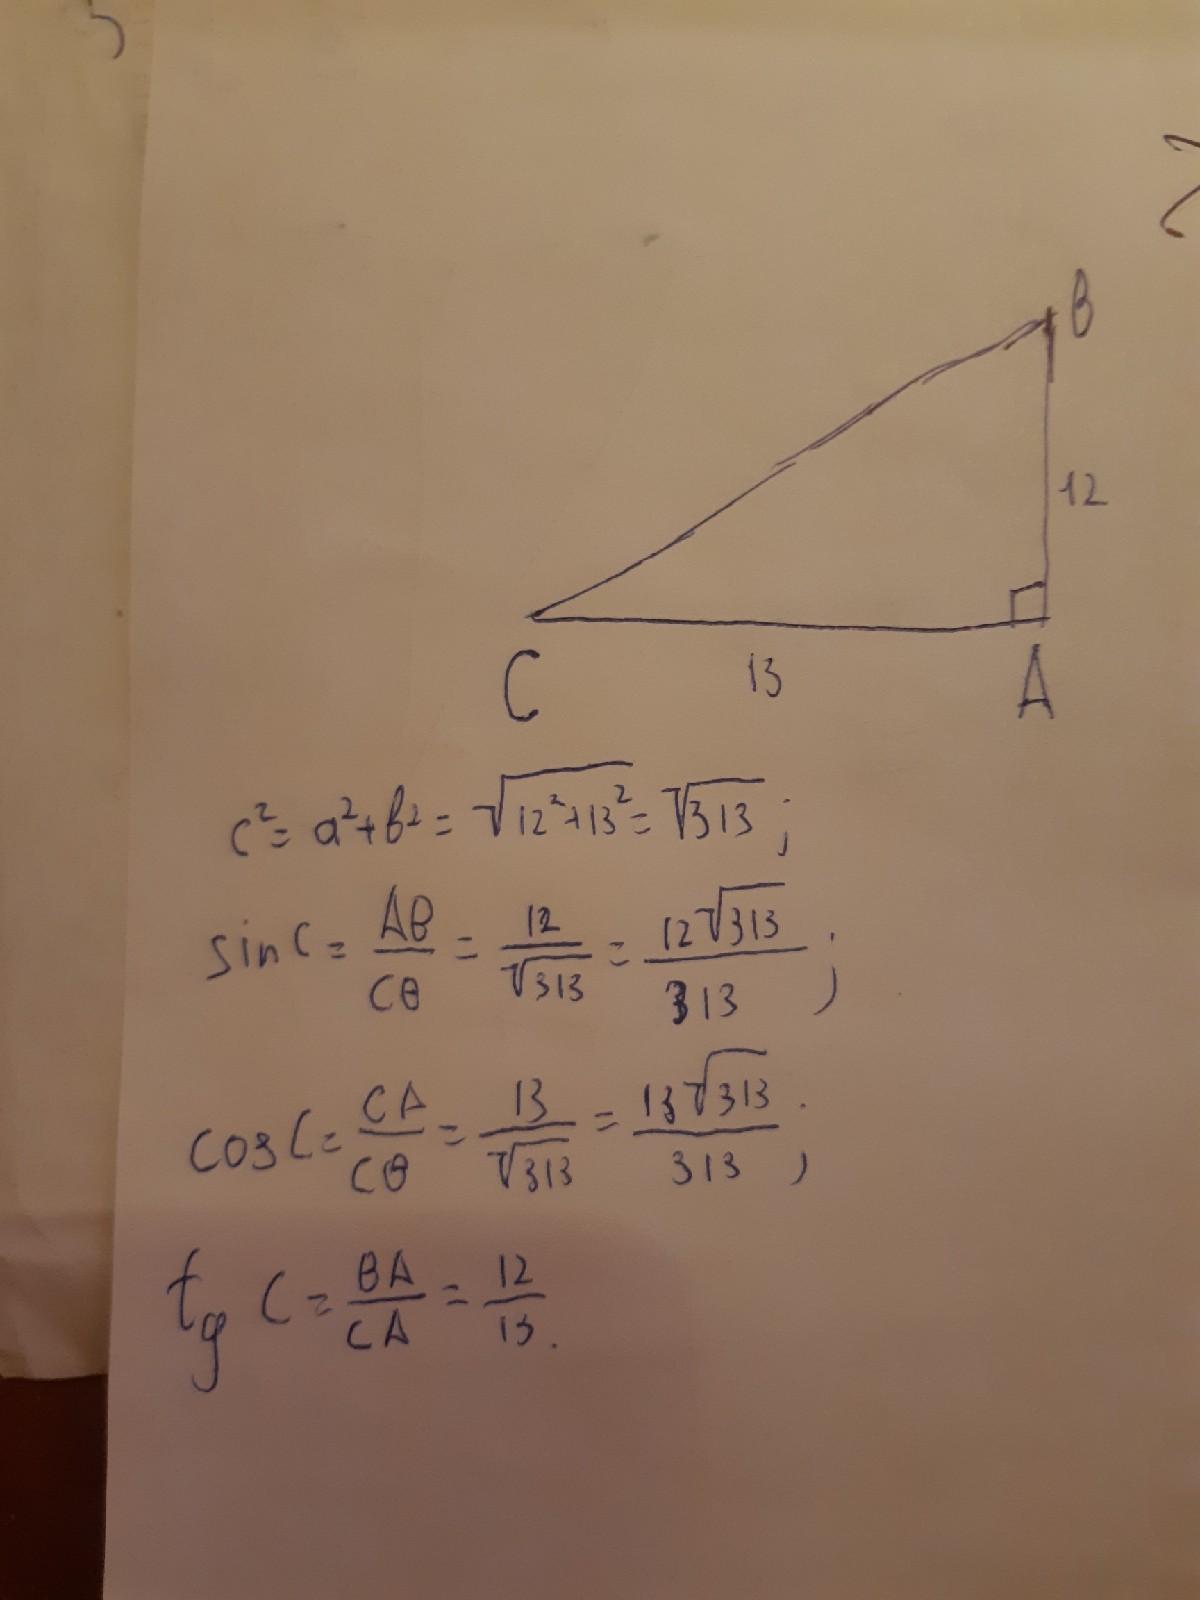 B
12
C 13 A
c² = a² + b² = √12² + 13² = √313;
sin C = AB/CB = 12/√313 = 12√313/313;
cos C = CA/CB = 13/√313 = 13√313/313;
tg C = BA/CA = 12/13.